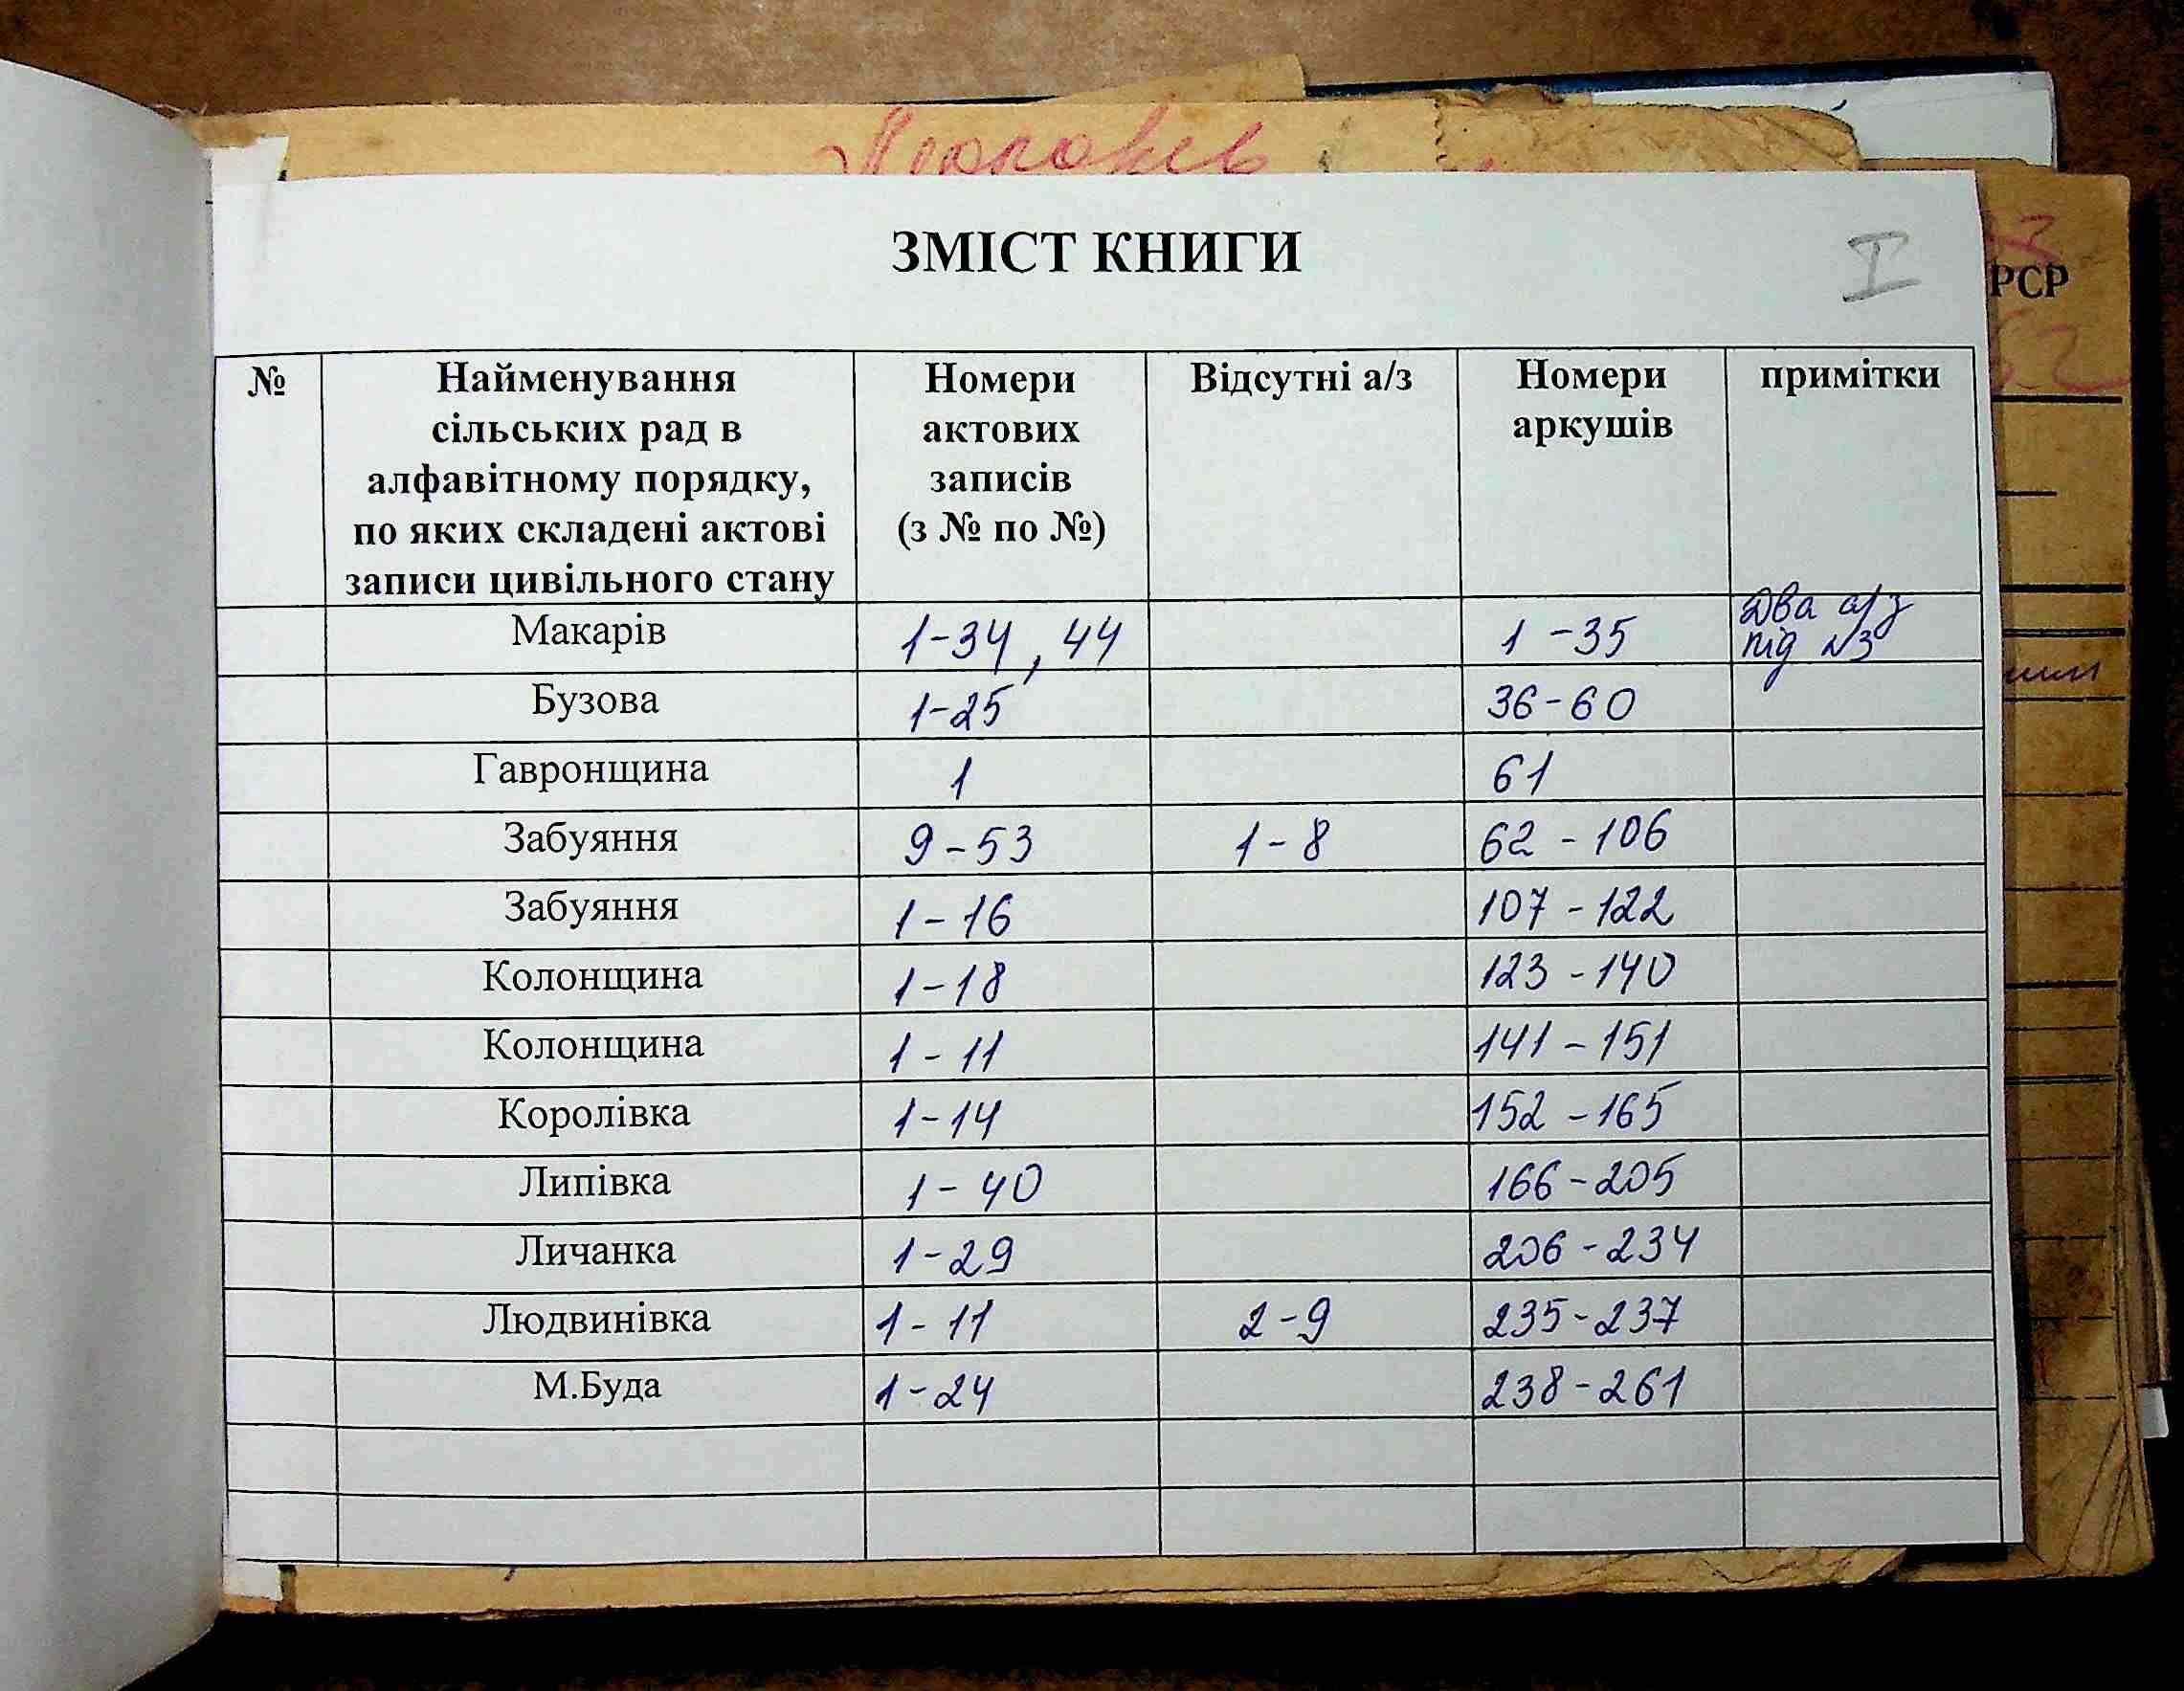 ЗМІСТ КНИГИ
I
РСР
№
Найменування
сільських рад в
алфавітному порядку,
по яких складені актові
записи цивільного стану
Номери
актових
записів
(з № по №)
Відсутні а/з
Номери
аркушів
примітки
Макарів 1-34, 44 1-35 Два а/з
під №3
Бузова 1-25 36-60
Гавронщина 1 61
Забуяння 9-53 1-8 62-106
Забуяння 1-16 107-122
Колонщина 1-18 123-140
Колонщина 1-11 141-151
Королівка 1-14 152-165
Липівка 1-40 166-205
Личанка 1-29 206-234
Людвинівка 1-11 2-9 235-237
М.Буда 1-24 238-261